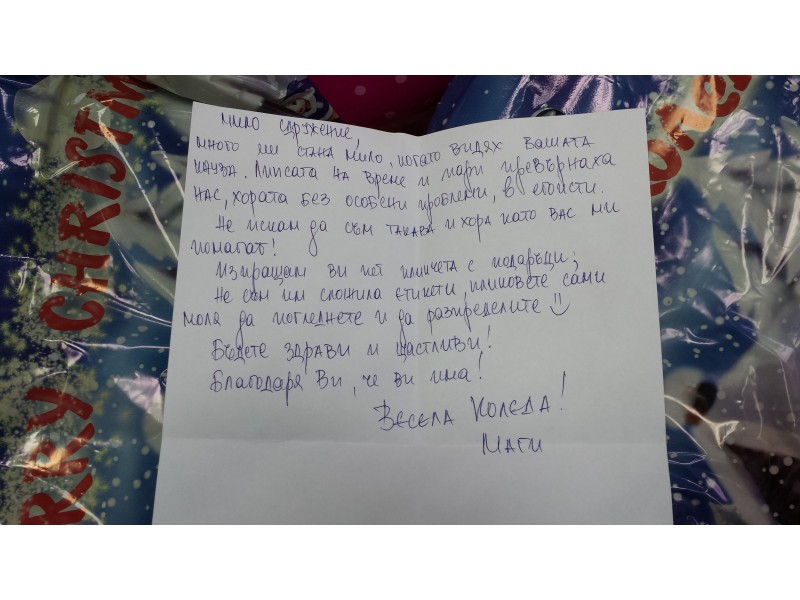 Мило сдружение,
много ми стана мило, когато видях вашата
кауза. Липсата на време и пари превърнаха
нас, хората без особени проблеми, в егоисти.
Не искам да съм такава и хора като вас ми
помагат!
Изпращам ви пет пликчета с подаръци;
Не съм им сложила етикети, пликовете сами
моля да погледнете и да разпределите
Бъдете здрави и щастливи!
Благодаря Ви, че ви има!
Весела Коледа!
Маги
RRY CHRISTM